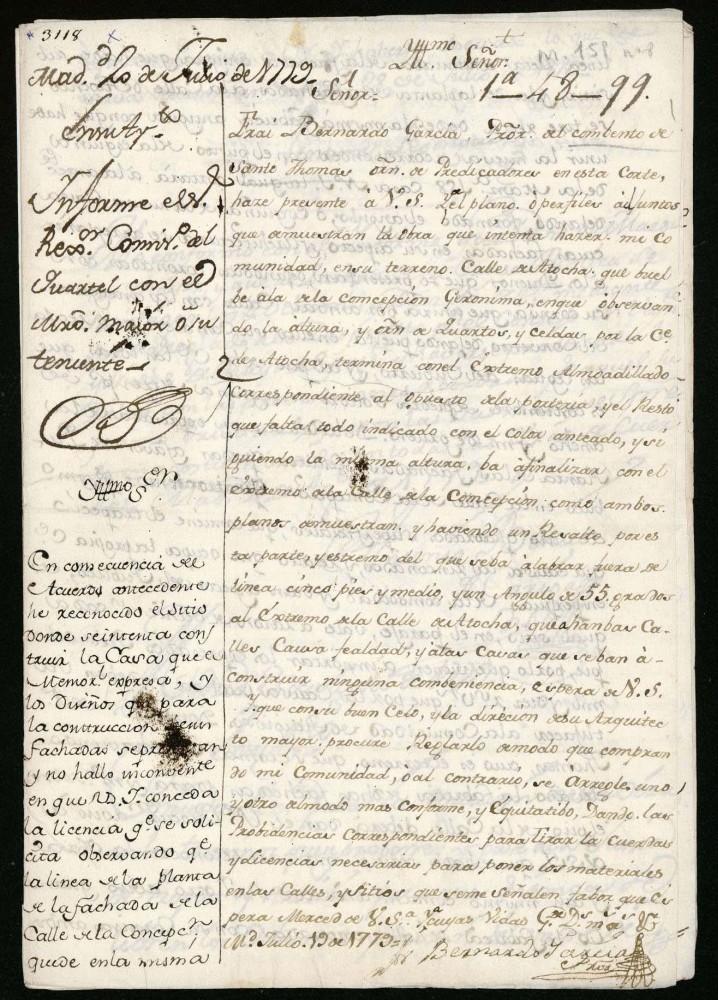 3118
Mad.d 20 de Julio de 1779
En Ayto
Informe el S.
Rexor. Comis.o del
Quartel con el
Mro. maior o su
teniente
Yllmo Sor
En consecuencia del
Acuerdo antecedente
he reconocido el sitio
donde se intenta cons
truir la Casa que el
Memorl. expresa, y
los Diseños que para
la contruccion de sus
fachadas se presentan
y no hallo inconvente
en que V.S.Y. conceda
la licencia qe. se soli
cita observando qe.
la linea de la planta
de la fachada de la
Calle de la Concepcn.
quede en la misma
Yllmo. Señor
Señor
1a—48—99.
Frai Bernardo Garcia, Prôr. del combento de
Santo Thomas orn. de Predicadores en esta Corte,
haze presente à V.S.Y. el plano o perfiles adjuntos
que amuestran la obra que intenta hazer mi co
munidad, en su terreno Calle de Atocha que buel
be à la de la comcepcion Geronima, en que observan
do la altura, y orn de Quartos, y celdas por la Ce.
de Atocha, termina con el Extremo Almoadillado
correspondiente al opuesto de la porteria, y el Resto
que falta todo indicado con el color anteado, y si
guiendo la misma altura, ba à finalizar con el
extremo de la Calle de la Concepcion como ambos
planos amuestran. y haviendo un Resalto por es
ta parte, y estremo del que se ba à labrar fuera de
linea cinco pies y medio, y un Angulo de 55. grados
al Extremo de la Calle de Atocha, que à hambas Ca
lles Causa fealdad, y à las Casas que se ban à
construir ninguna combeniencia, Espera de V.S.
Y. que con su buen Celo, y la direcion de su Arquitec
to mayor procure Reglarlo de modo que compran
do mi Comunidad, o al contrario, se Arregle uno
y otro al modo mas Conforme, y Equitatibo, Dando las
Probidencias correspondientes para tirar la cuerda
y licencias necesarias para poner los materiales
en las Calles, y Sitios que se me señalen fabor que es
pera Merced de V.S.Ya. cuyas Vidas Gue. Ds. ms. as.
Md. Julio 19 de 1779
Bernardo Garcia
Prôr